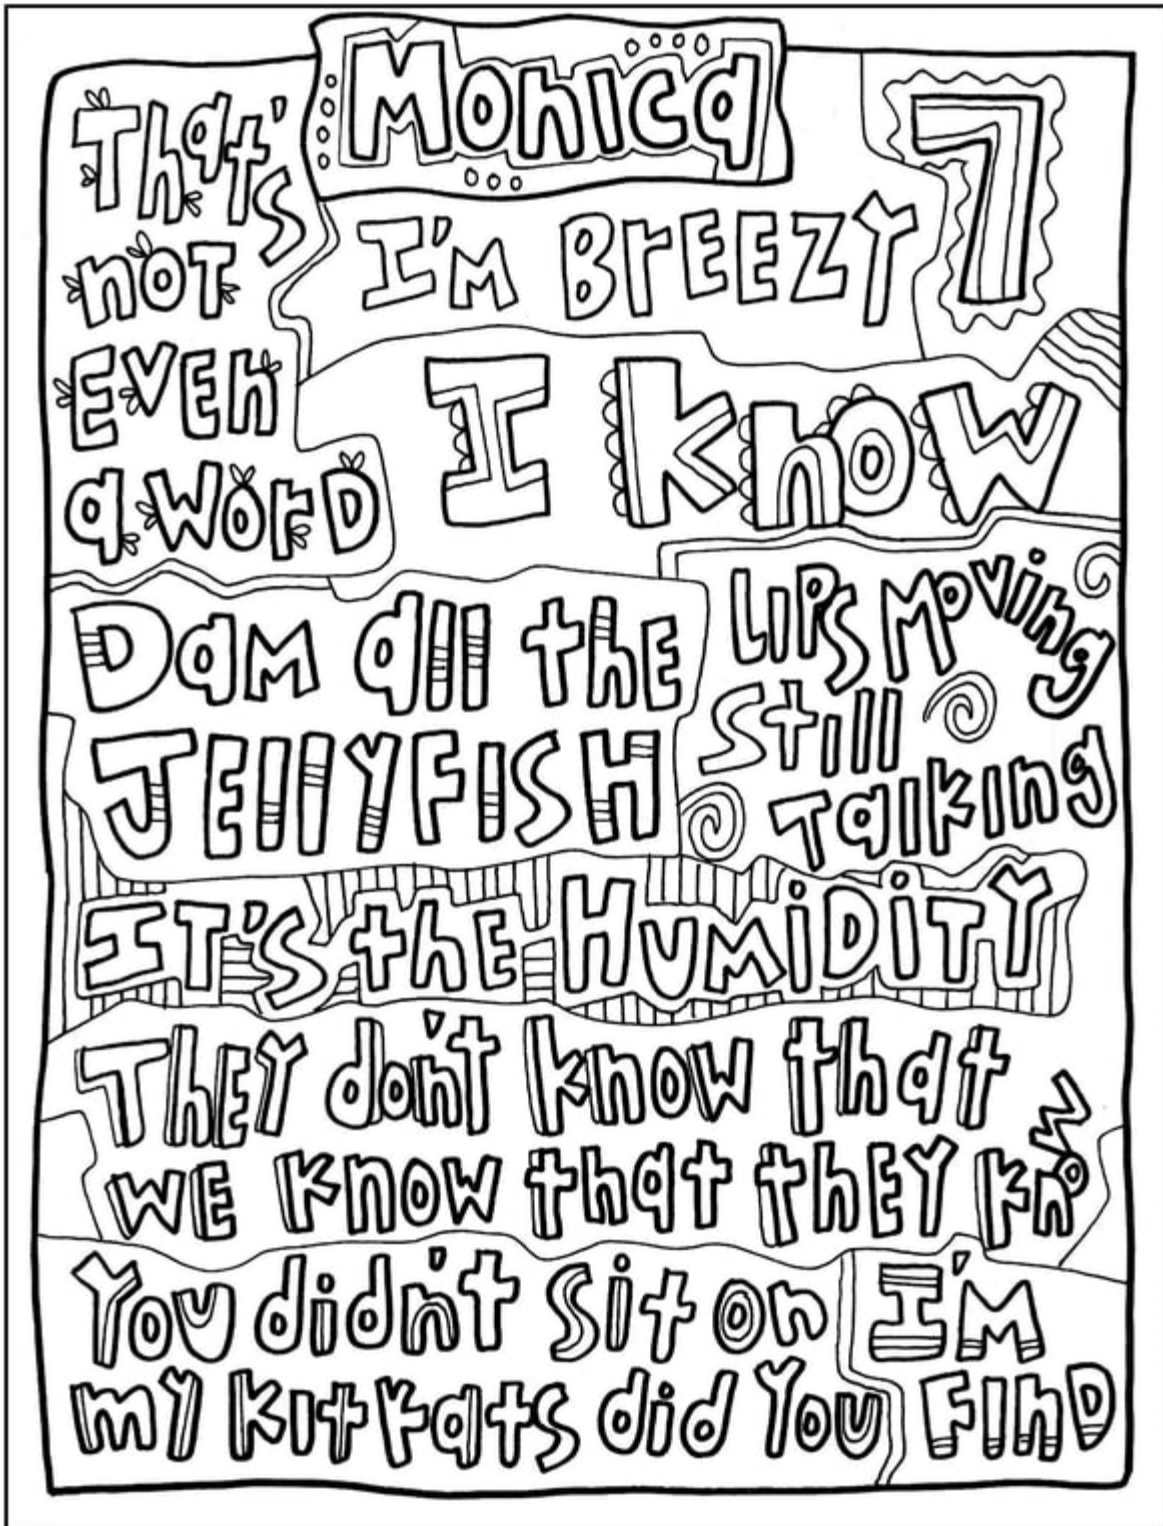 Monica
That's
not
EVEN
a WorD
7
I'M BrEEZY
I Know
Dam all the
JEllYFISH
LIPS Moving
Still
Talking
IT'S the HUMiDiTY
THEY don't know that
WE Know that thEY Know
You didn't sit on
my Kitkats did You
I'M
FInD